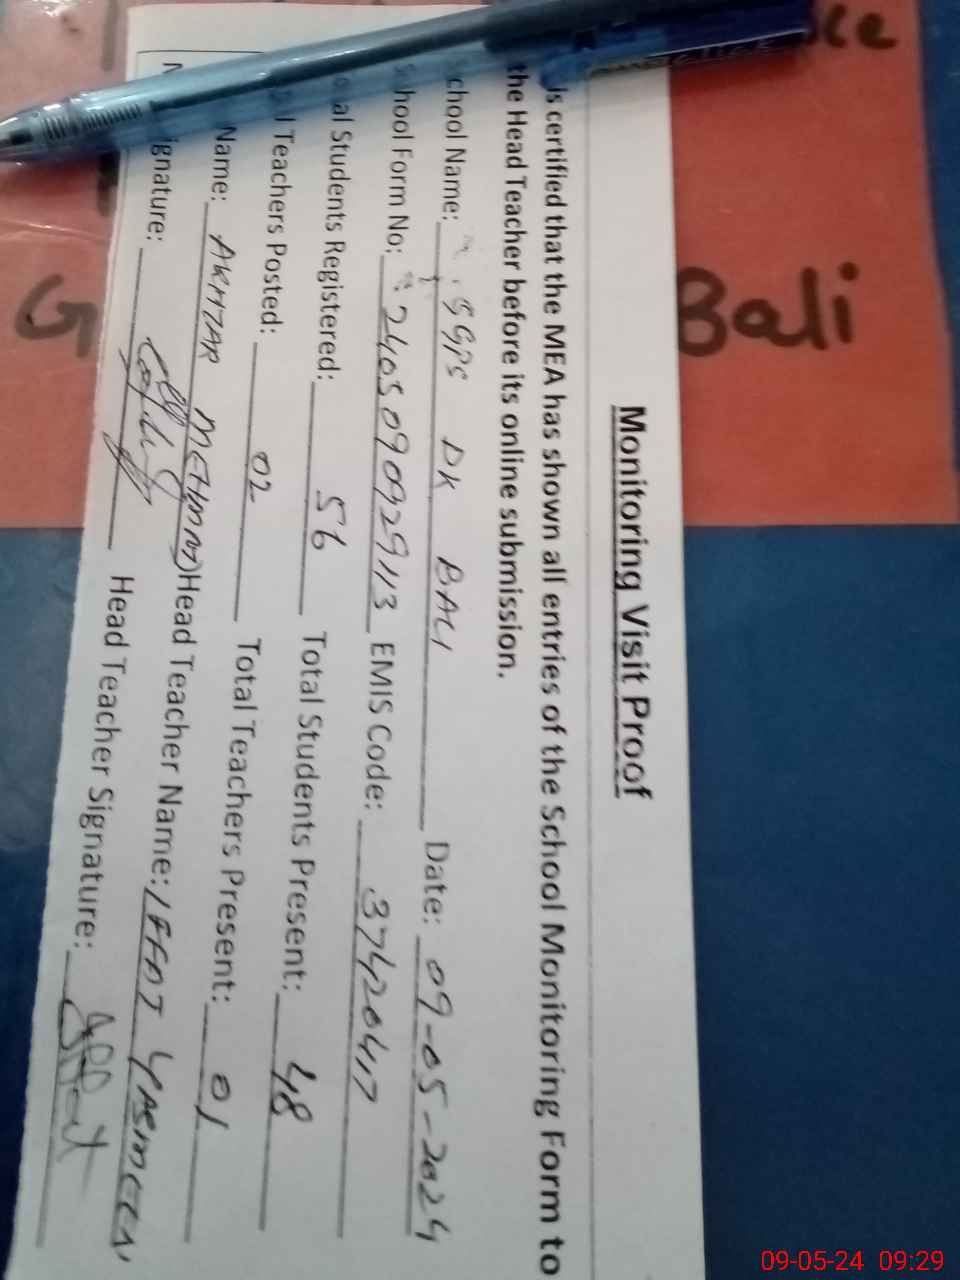 Monitoring Visit Proof
is certified that the MEA has shown all entries of the School Monitoring Form to
the Head Teacher before its online submission.
chool Name: GGPS DK BALI Date: 09-05-2024
hool Form No: 240509092913 EMIS Code: 37420417
al Students Registered: 56 Total Students Present: 48
l Teachers Posted: 02 Total Teachers Present: 01
Name: AKHTAR MEHMOOD Head Teacher Name: IFFAT YASMEEN
ignature: Head Teacher Signature: Iffat
ce
Bali
G
09-05-24 09:29